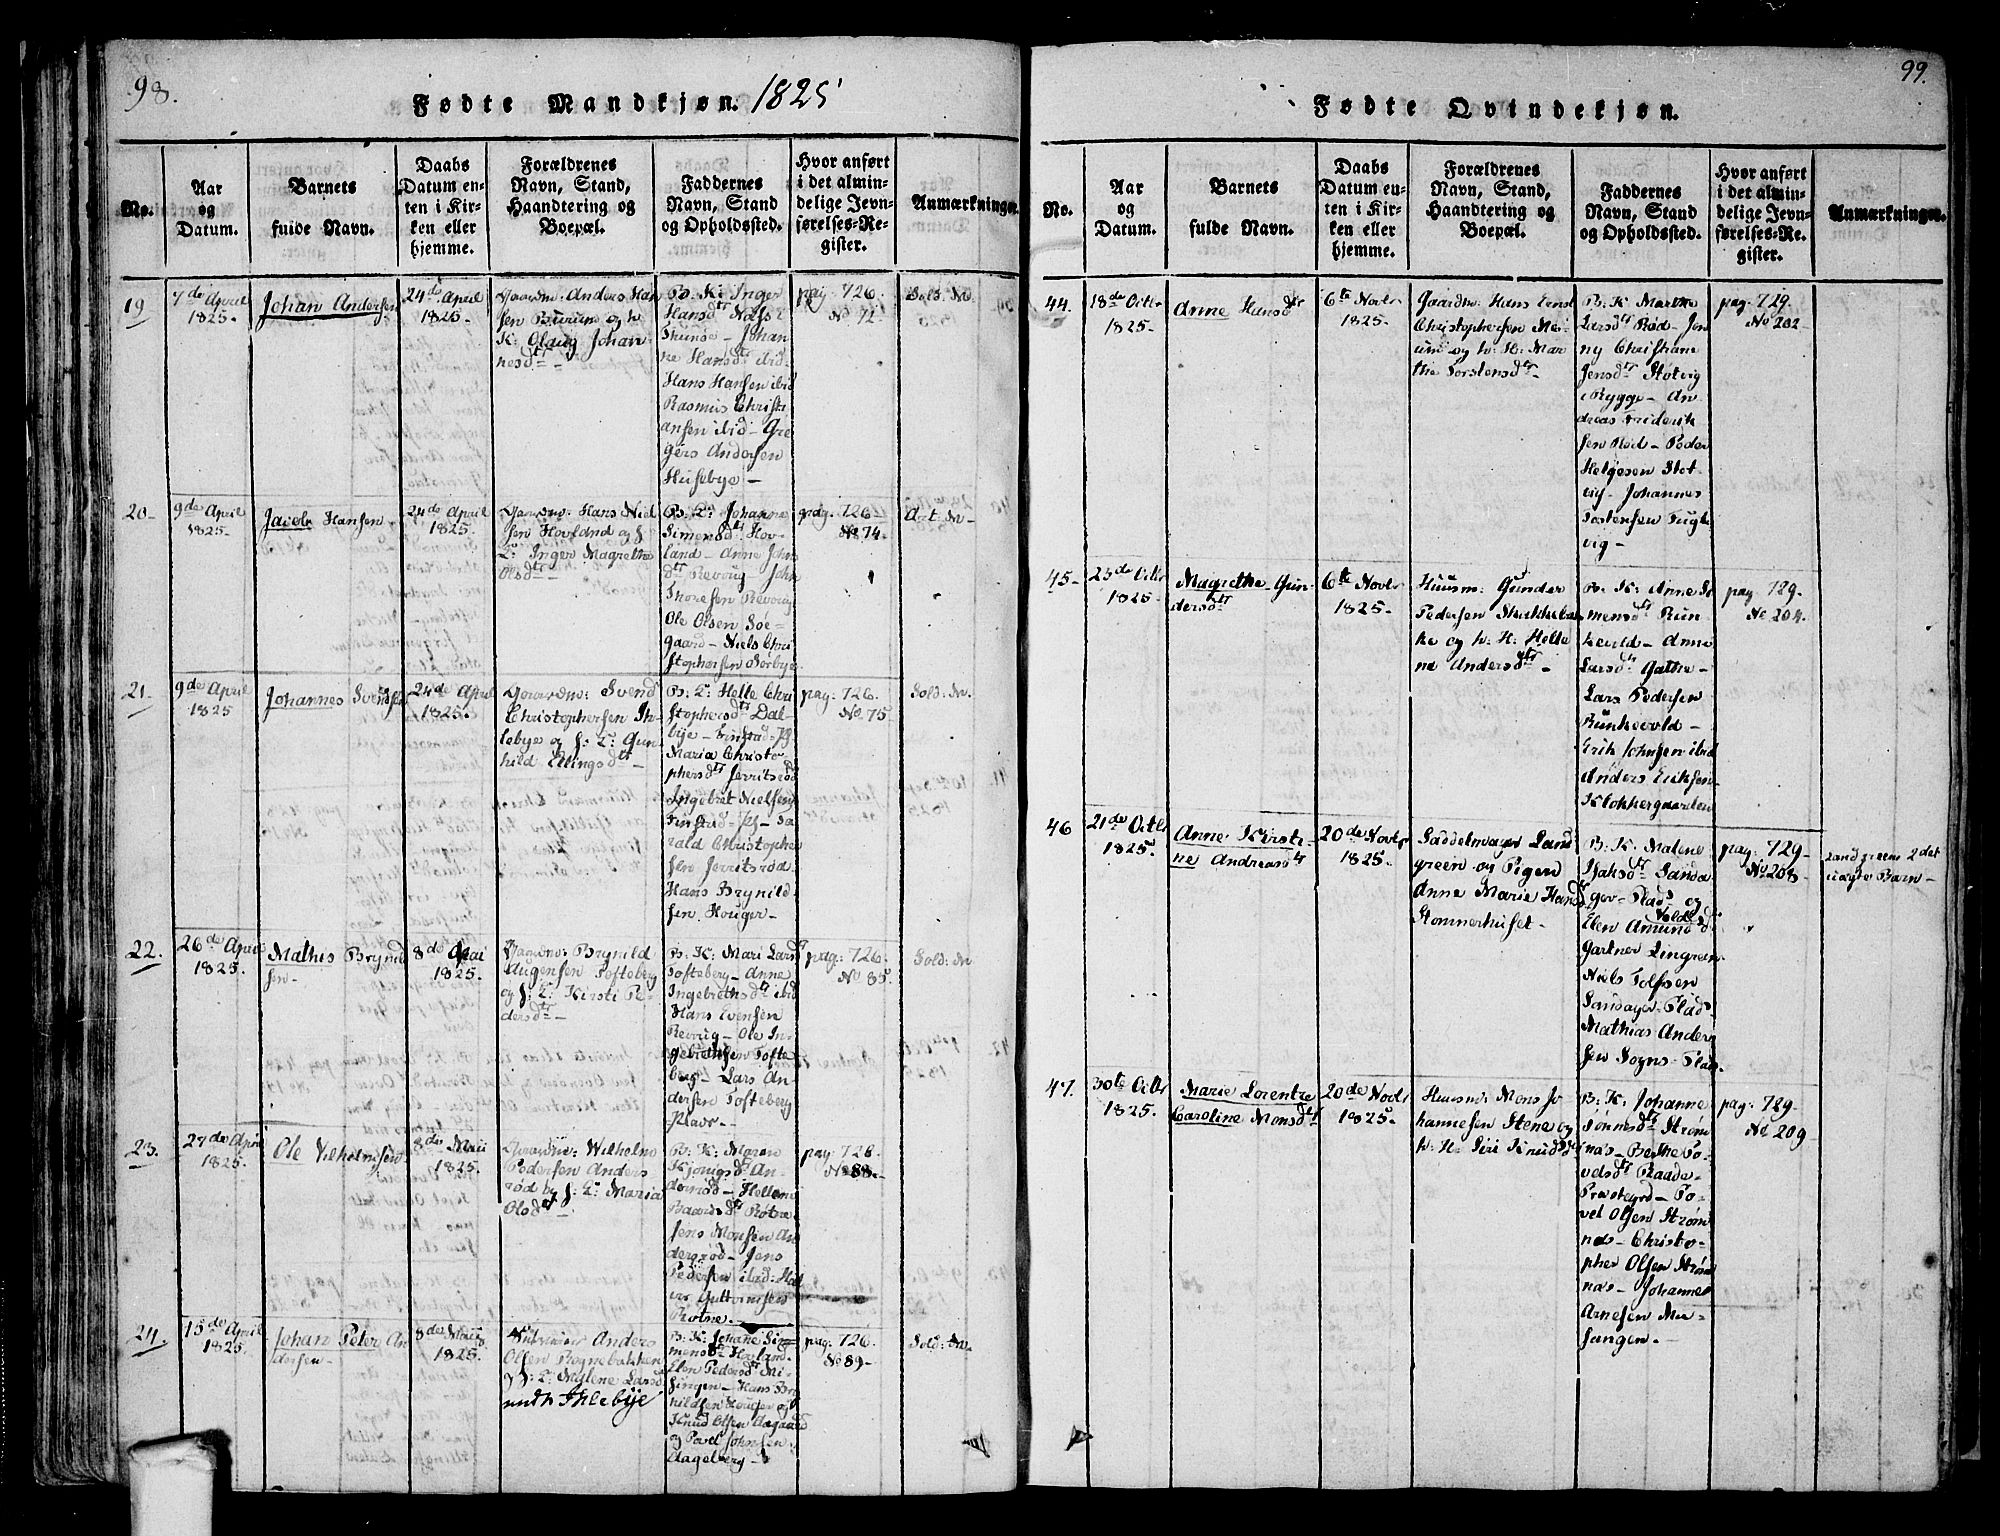 98.
Fødte Mandkjøn. 1825
No.
Aar
og
Datum.
Barnets
fulde Navn.
Daabs
Datum en-
ten i Kir-
ken eller
hjemme.
Forældrenes
Navn, Stand,
Haandtering og
Boepæl.
Faddernes
Navn, Stand
og Opholdssted.
Hvor anført
i det almin-
delige Jevn-
førelses-Re-
gister.
Anmærkninger.
19
7de April
1825.
Johan Andersen
24de April
1825.
Gaardm: Anders Han
sen Burum og h
K: Olaug Johan
nesdtr –
B. K: Inger
Hansdtr
Johan
ne Hansdtr ibid
Hans Hansen ibid
Rasmus Christi
ansen ibid – Gre
gers Andersen
Husebye –
pag. 726.
No 72.
Sold. No.
20
9de April
1825.
Jacob Hansen
24de April
1825.
Gaardm: Hans Niel
sen Hovland og f.
K: Inger Magrethe
Olsdtr –
Johanne
Simensdtr Hov-
land – Anne Johns
dtr Revoug – John
Thoresen Revoug
Ole Olsen Soe-
gaard – Niels Chri
stophersen Sørbye
pag. 726
No 74.
21
9de April
1825
Johannes Svendsen
24de April
1825.
Gaardm: Svend
Christophersen Ih-
lebye og f. K: Gun
hild Ellingsdtr –
B: K: Helle Chri
stophersdtr Dal-
bye –
Maria Christo-
phersdtr Jerritsrød
Ingebret Nielsen
Christopher
sen Jerritsrød
Hans Brynild
sen Houger –
pag. 726.
No 75
Sold. No.
22.
26de April
1825.
Mathis Brynild
sen –
8de Mai
1825.
Gaardm: Brynild
Augensen Tofteberg
og f: K: Kirsti Pe-
dersdtr
B: K: Mari Larsdtr
Tofteberg – Anne
Ingebrethsdtr ibid
Hans Evensen
Revoug – Ole In-
gebrethsen Tofte
berg – Lars An-
dersen Tofteberg
pag: 726.
No 85.
Sold. No
23.
27de April
1825.
Ole Vilhelmsen
8de Mai
1825.
Gaardm: Wilhelm
Pedersen Anders
rød og f: K: Maria
Olsdtr –
B: K: Maren
Kjønigsdtr An-
dersrød – Hellene
Baardsdtr Røtne
Jens Monsen An
dersrød – Jens
Pedersen ibid: Hal
vor Guttormsen
Røtne.
pag. 726.
No 88.
24.
15de April
1825.
Johan Peter An
dersen –
8de Mai
1825.
Anders
Olsen Rognebakken
og f: K: Malene Larsd
under Ihlebye
B: K: Johane Sim
mensdtr Hovland
Elen Pedersdtr Mi
singen – Hans Bry
nildsen Houger og
Knud Olsen Aagaard
og Povel Johnsen
Hageberg –
pag. 726.
No 89 –
Sold. No.
99.
Fødte Qvindekjøn.
No.
Aar
og
Datum.
Barnets
fulde Navn.
Daabs
Datum en-
ten i Kir-
ken eller
hjemme.
Forældrenes
Navn, Stand,
Haandtering og
Boepæl.
Faddernes
Navn, Stand
og Opholdssted.
Hvor anført
i det almin-
delige Jevn-
førelses-Re-
gister.
Anmærkninger.
44.
18de Octbr
1825 –
Anne Hansdtr
6te Novbr
1825 –
Gaardm: Hans Ernst
Christophersen
og h: K: Mar
the Torstensdtr –
B: K Marthe
Larsdtr Rød – Jen
ny Christiane
Jensdtr Støtvig
i Rygge – An
dreas Friderik
sen Rød – Peder
Helgesen Støt
vig – Johannes
Tostensen Fugle
vig –
pag: 729.
No 202 –
45 –
23de Octbr
1825.
Magrethe Gun
dersdtr
6te Novbr
1825.
Huusm: Gunder
Pedersen Skakkebak
ke og h: K: Helle
ne Andersdtr –
B: K: Anne Si
mensdtr Run
kevold – Anne
Larsdtr Gathe –
Lars Pedersen
Runkevold –
Erik Johnsen ibid
Anders Eriksen
Klokkergaarden
pag 729.
No 204.
46
21de Octbr
1825.
Anne Kirsti
ne Andreasdtr
20de Novbr
1825.
Saddelmager Land
green og Pigen
Anne Marie Hansdtr
Stommerhuset –
B. K. Malene
Isaksdtr Sanda
ger – Plads og
Elen Amundsd
Gartner Lingreen
Niels Tolfsen
Sandager – Plads
Mathias Ander
sen Sogns – Plads.
pag: 729 –
No 208 –
Landgreens 2det
uægte Barn –
47.
30te Octbr
1825.
Marie Lorentze
Caroline Monsdtr
20de Novbr
1825.
Huusm: Mons Jo
hannesen Stene og
h: K: Siri Knudsdtr
B: K: Johanne
Tønnesdtr Strøm
nas – Berthe Po-
velsdtr Raade –
Præstegrd – Po-
vel Olsen Strøm
nas – Christo-
pher Olsen Strøm
nas – Johannes
Arnesen Mis-
singen –
pag: 729 –
No 209